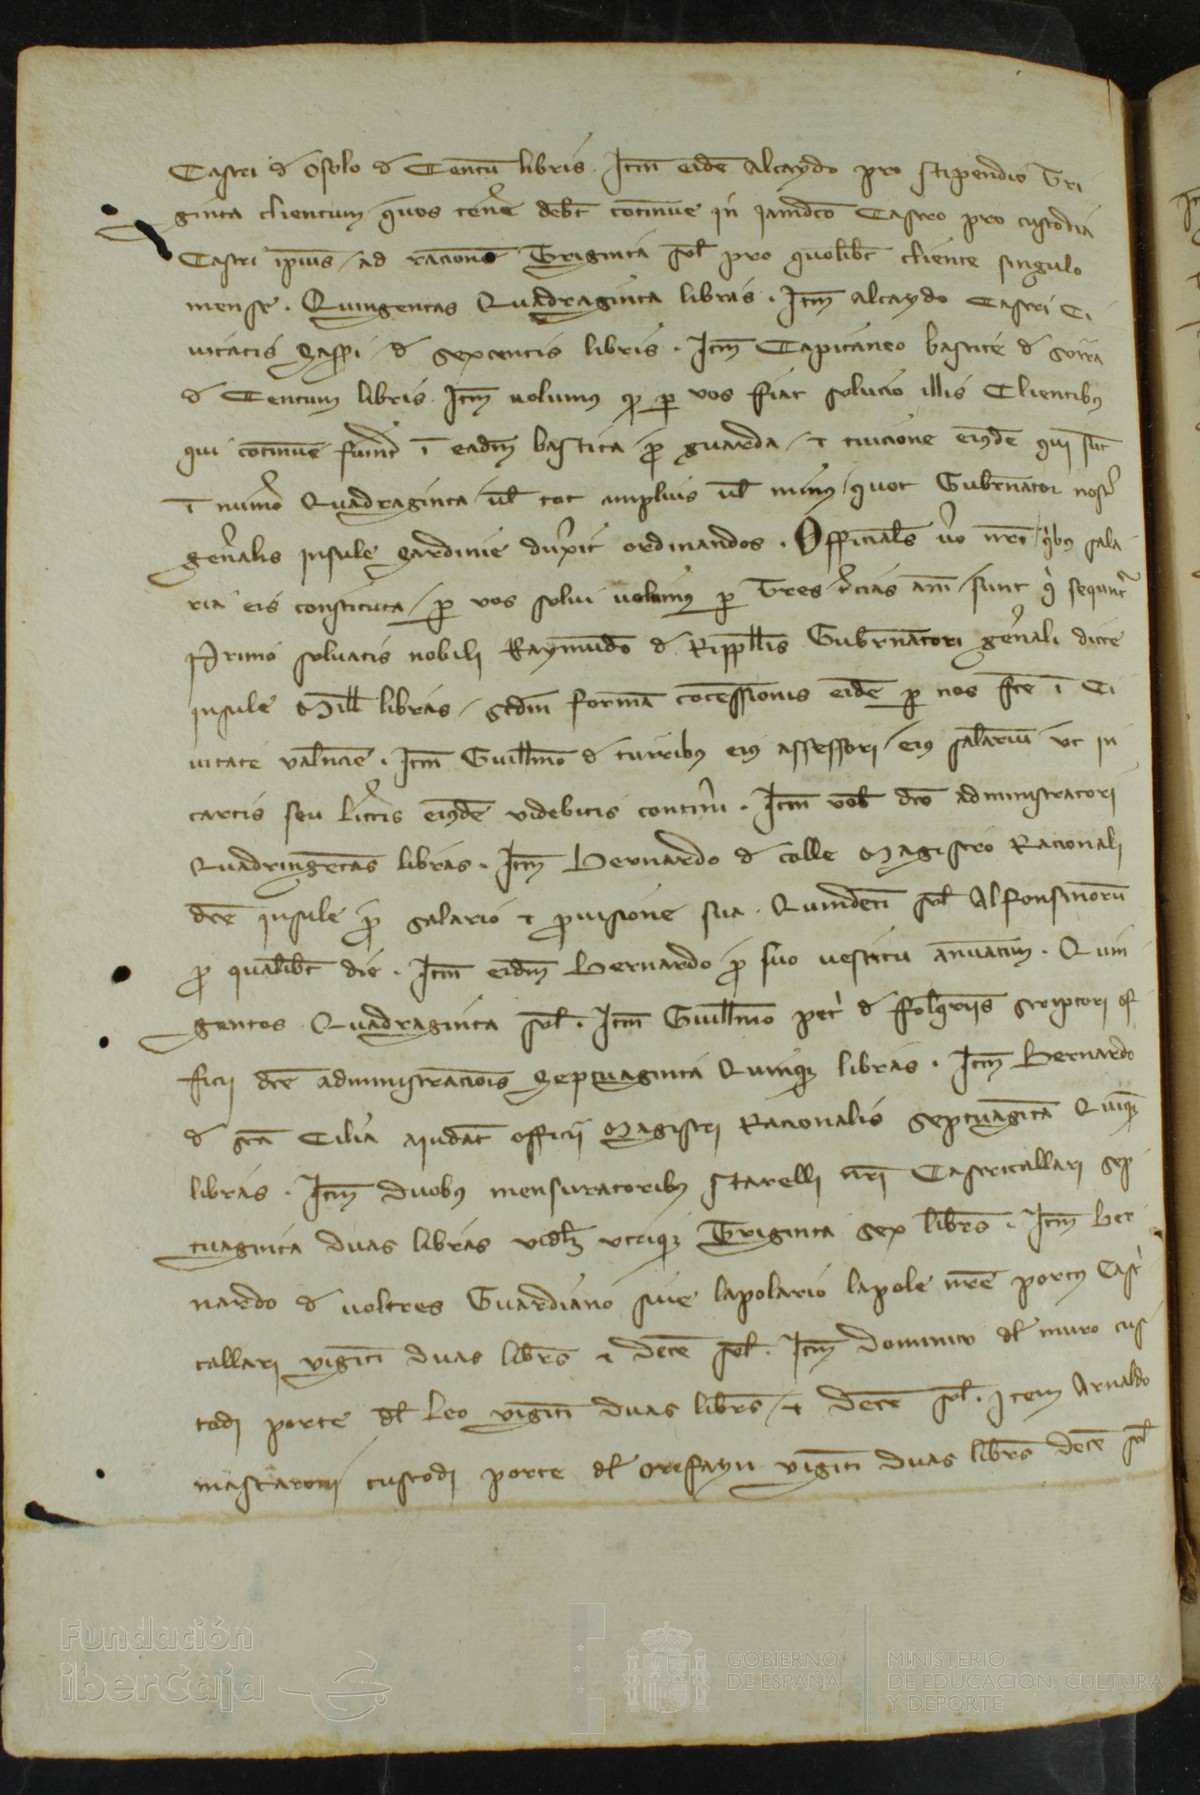 Castri d Osolo d Centū libris. Itm̄ eidē Alcaydo pro stipendio tri
ginta clientum quos tenere debt cotinue in iamdco Castro pro custodia
Castri ipius / ad racionē Triginta sol pro quolibt cliente singulo
mense. Quingentas Quadraginta libras. Itm̄ alcaydo Castri Ci
uitatis Sasseri d sexcentis libris. Itm̄ Capitaneo bastite d
d Centum libris. Itm̄ uolumus qd p vos fiat solucio illis Clientibus
qui cotinue fuerit ī eadm̄ bastita / pro guarda / et tuicione eiusdē qui sūt
ī numero Quadraginta / ul tot amplius ul minus / quot Gubernator nost
generalis insule Sardinie duxit ordinandos. Officiales uo nrī / qibus sala
ria eis constituta / p vos solui uolumus p tres tcias anni / sunt qi sequnt
Primo soluatis nobili Raymundo d Rippllis Gubernatori generali dicte
insule Mille libras / scdm̄ formā cōcessionis eidē p nos fcē ī Ci
uitate valencie. Itm̄ Guillmo d turribus eius assessori / eius salarium ut in
cartis seu littris eiusdē videbitis contineri. Itm̄ vob dco administratori
Quadringētas libras. Itm̄ Bernardo d colle Magistro Racionali
dcē insule pro salario et prouisione sua. Quindeci sol Alfonsinorū
pro qualibt die. Itm̄ eidm̄ Bernardo pro suo uestitu annuatim. Quin
gentos Quadraginta sol. Itm̄ Guillmo pet d ffolgriis scriptori of
ficii dcē administracionis Septuaginta Quinqz libras. Itm̄ Bernardo
d scā Cilia aiudāt officii Magistri Racionalis septuagīta Quīqz
libras. Itm̄ duobus mensuratoribus starelli nrī Castricallari sep
tuaginta duas libras vidlz utriqz Triginta sex librs. Itm̄ Ber
nardo d uoltres Guardiano siue lapolario lapole nrē portus Castr
callari viginti duas librs et decē sol. Itm̄ dominico dl muro cus
todi porte dl Leo viginti duas librs / et decē sol. Item Arnaldo
custodi porte dl orifayn viginti duas librs decē sol
Fundación
iberCaja
GOBIERNO
DE ESPAÑA
MINISTERIO
DE EDUCACIÓN, CULTURA
Y DEPORTE